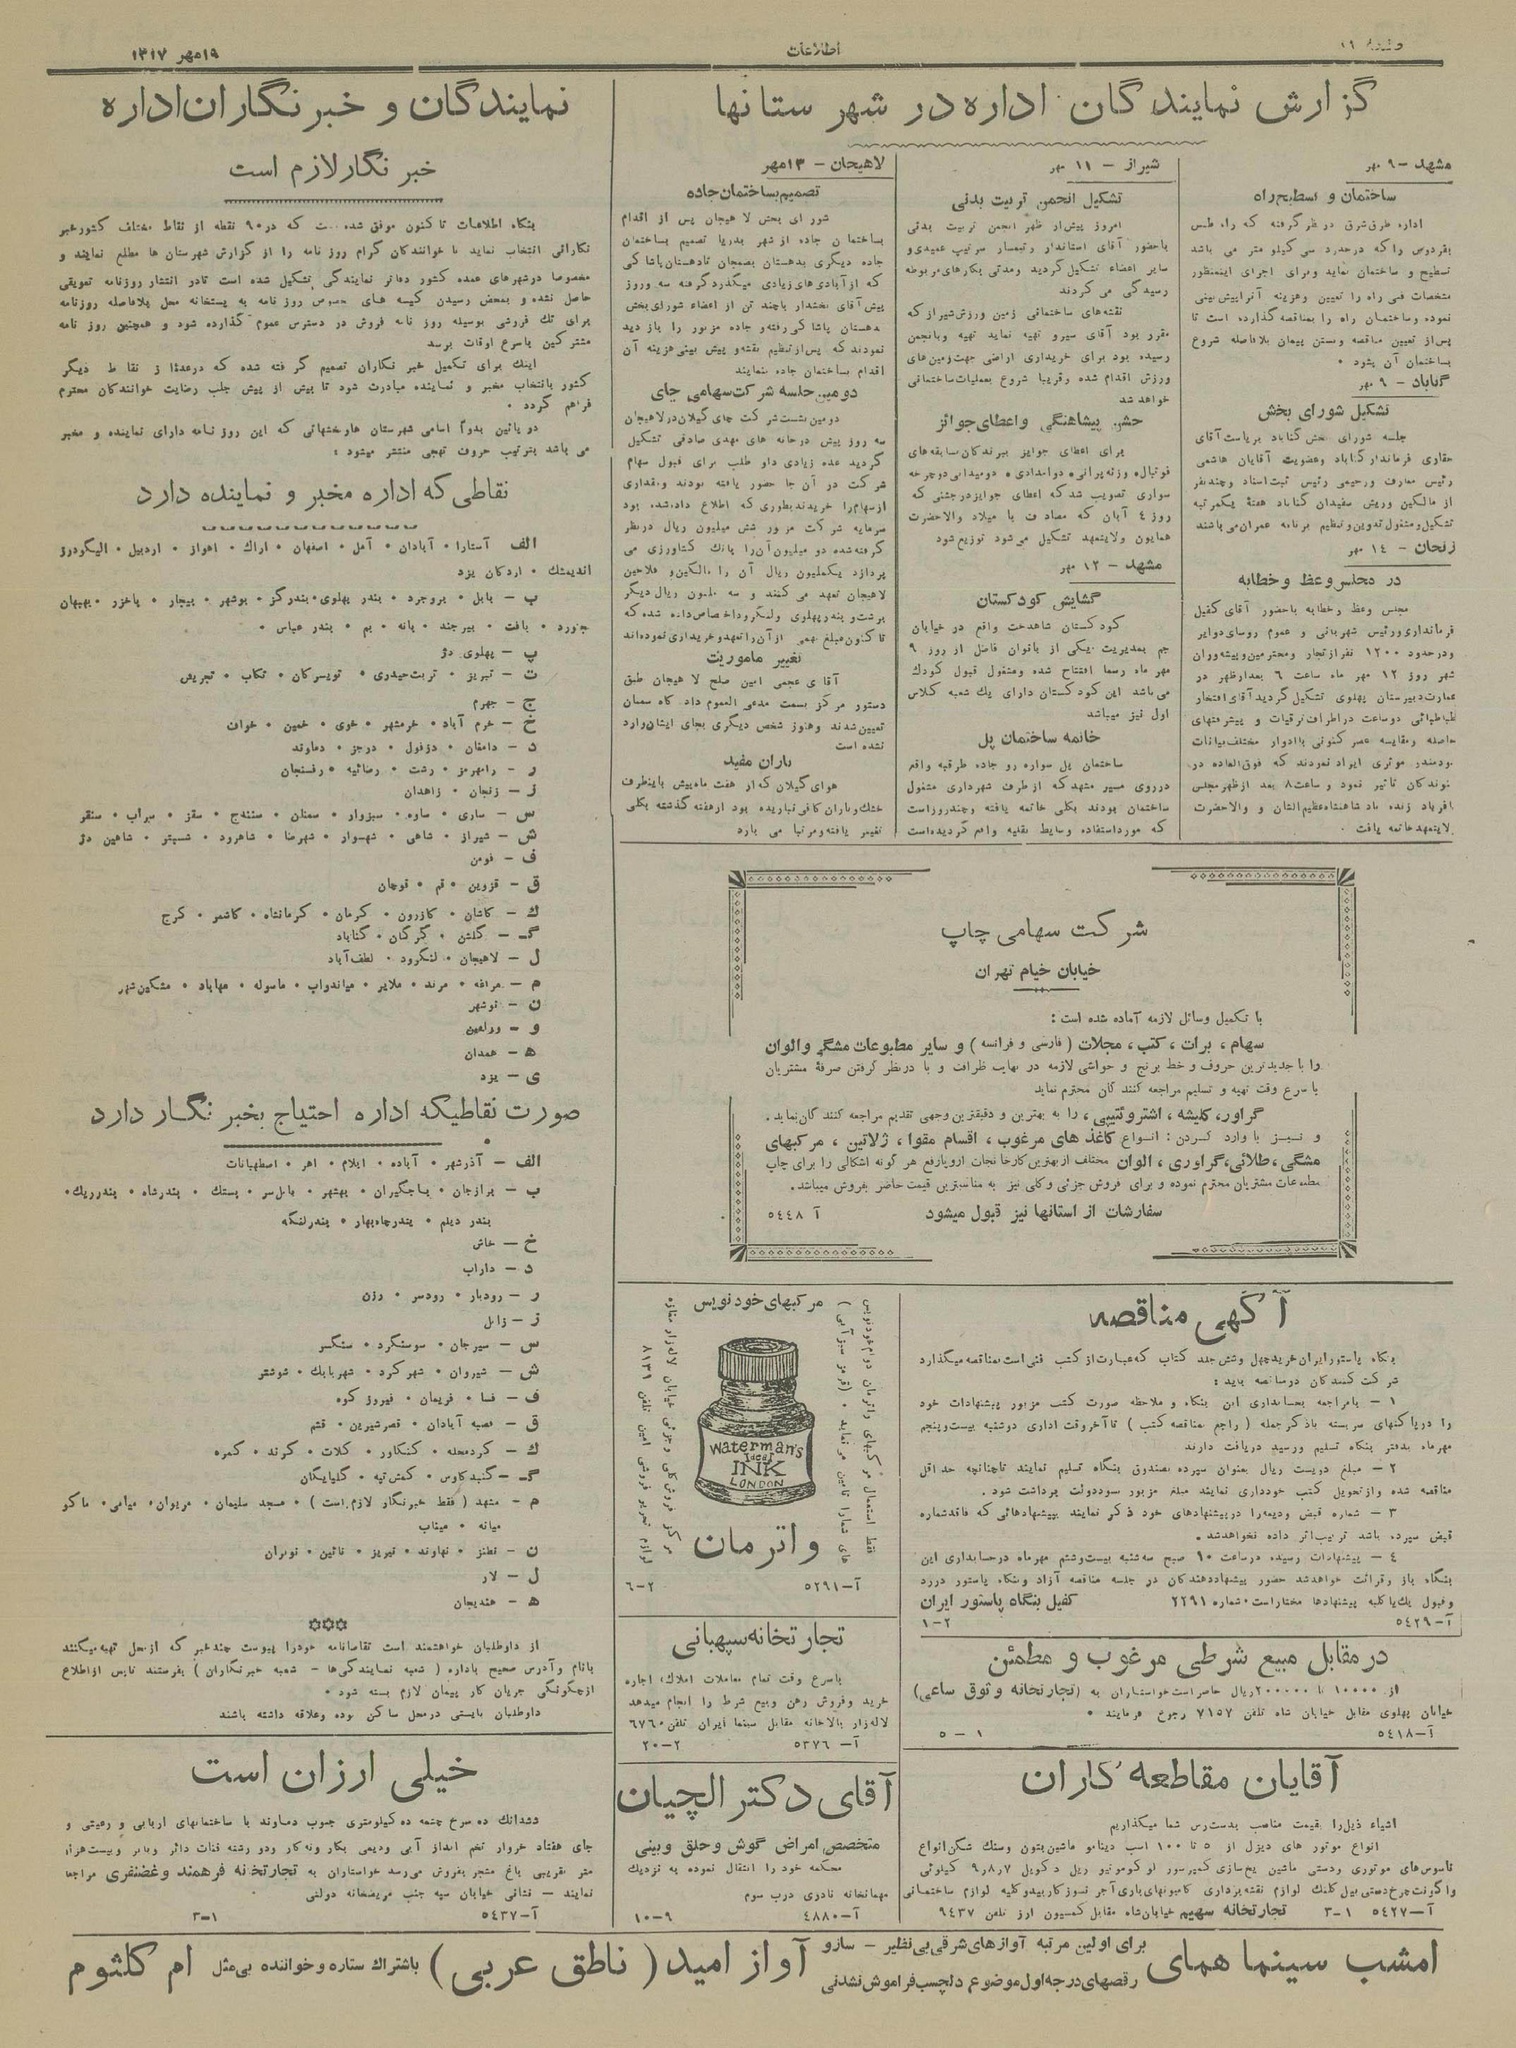 صفحه ۱۱
اطلاعات
۱۹ مهر ۱۳۱۷
گزارش نمایندگان اداره در شهرستانها
مشهد - ۹ مهر
ساختمان و تسطیح راه
اداره طرق شرق در نظر گرفته که راه طبس
بفردوس را که در حدود سی کیلو متر می باشد
تسطیح و ساختمان نماید و برای اجرای اینمنظور
مشخصات فنی راه را تعیین و هزینه آنرا پیش بینی
نموده و ساختمان راه را بمناقصه گذارده است تا
پس از تعیین مناقصه و بستن پیمان بلافاصله شروع
بساختمان آن بشود •
گناباد - ۹ مهر
تشکیل شورای بخش
جلسه شورای بخش گناباد بریاست آقای
حقاری فرماندار گناباد و عضویت آقایان هاشمی
رئیس معارف و رحیمی رئیس ثبت اسناد و چند نفر
از مالکین و ریش سفیدان گناباد هفته یکمرتبه
تشکیل و مشغول تدوین و تنظیم برنامه عمران می باشند
زنجان - ۱۴ مهر
در مجلس وعظ و خطابه
مجلس وعظ و خطابه با حضور آقای کفیل
فرمانداری و رئیس شهربانی و عموم روسای دوایر
و در حدود ۱۲۰۰ نفر از تجار و محترمین و پیشه وران
شهر روز ۱۲ مهر ماه ساعت ۶ بعد از ظهر در
عمارت دبیرستان پهلوی تشکیل گردید آقای افتخار
طباطبائی دو ساعت در اطراف ترقیات و پیشرفتهای
حاصله و مقایسه عصر کنونی با ادوار مختلف بیانات
سودمند موثری ایراد نمودند که فوق العاده در
شنوندگان تاثیر نمود و ساعت ۸ بعد از ظهر مجلس
بافریاد زنده باد شاهنشاه عظیم الشان و والاحضرت
ولایتعهد خاتمه یافت •
شیراز - ۱۱ مهر
تشکیل انجمن تربیت بدنی
امروز پیش از ظهر انجمن تربیت بدنی
با حضور آقای استاندار و تیمسار سرتیپ عمیدی و
سایر اعضاء تشکیل گردید و مدتی بکارهای مربوطه
رسیدگی می کردند
نقشه های ساختمانی زمین ورزش شیراز که
مقرر بود آقای سیرو تهیه نماید تهیه و بانجمن
رسیده بود برای خریداری اراضی جهت زمین های
ورزش اقدام شده و قریبا شروع بعملیات ساختمانی
خواهد شد
جشن پیشاهنگی و اعطای جوائز
برای اعطای جوایز ببرندگان سابقه های
فوتبال • وزنه پرانی • دوامدادی • دومیدانی دوچرخه
سواری تصویب شد که اعطای جوایز در جشنی که
روز ۴ آبان که مصادف با میلاد والاحضرت
همایون ولایتعهد تشکیل می شود توزیع شود
مشهد - ۱۲ مهر
گشایش کودکستان
کودکستان شاهدخت واقع در خیابان
جم بمدیریت یکی از بانوان فاضل از روز ۹
مهر ماه رسما افتتاح شده و مشغول قبول کودک
می باشد این کودکستان دارای یک شعبه کلاس
اول نیز میباشد
خاتمه ساختمان پل
ساختمان پل سواره رو جاده طرقبه واقع
در روی مسیر مشهد که از طرف شهرداری مشغول
ساختمان بودند بکلی خاتمه یافته و چند روز است
که مورد استفاده وسایط نقلیه واقع گردیده است
لاهیجان - ۱۳ مهر
تصمیم بساختمان جاده
شورای بخش لاهیجان پس از اقدام
بساختمان جاده از شهر بدریا تصمیم بساختمان
جاده دیگری بدهستان بضمجان تا دهستان پاشاکی
که از آبادی های زیادی میگذرد گرفته سه روز
پیش آقای بخشدار با چند تن از اعضاء شورای بخش
بدهستان پاشاکی رفته و جاده مزبور را بازدید
نمودند که پس از تنظیم نقشه و پیش بینی هزینه آن
اقدام بساختمان جاده بنمایند
دومین جلسه شرکت سهامی چای
دومین نشست شرکت چای گیلان در لاهیجان
سه روز پیش در خانه های مهدی صادقی تشکیل
گردید عده زیادی داو طلب برای قبول سهام
شرکت در آن جا حضور یافته بودند و مقداری
از سهام را خریدند بطوری که اطلاع داده شده بود
سرمایه شرکت مزبور شش میلیون ریال در نظر
گرفته شده دو میلیون آن را بانک کشاورزی می
پردازد یکملیون ریال آن را مالکین و فلاحین
لاهیجان تعهد می کنند و سه ملیون ریال دیگر
برشت و بندر پهلوی و لنگرود اختصاص داده شده که
تا کنون مبلغ مهمی از آن را تعهد و خریداری نموده اند
تغییر ماموریت
آقای عجمی امین صلح لاهیجان طبق
دستور مرکز بسمت مدعی العموم دادگاه سمنان
تعیین شدند و هنوز شخص دیگری بجای ایشان وارد
نشده است
باران مفید
هوای گیلان که از هفت ماه پیش باینطرف
خشک و باران کافی نباریده بود از هفته گذشته بکلی
تغییر یافته و مرتبا می بارد
شرکت سهامی چاپ
خیابان خیام تهران
با تکمیل وسائل لازمه آماده شده است :
سهام ، برات ، کتب ، مجلات ( فارسی و فرانسه ) و سایر مطبوعات مشکی و الوان
را با جدیدترین حروف و خط برنج و حواشی لازمه در نهایت ظرافت و با در نظر گرفتن صرفهٔ مشتریان
با سرع وقت تهیه و تسلیم مراجعه کنندگان محترم نماید
گراور ، کلیشه ، اشتروتیپی ، را به بهترین و دقیقترین وجهی تقدیم مراجعه کنندگان نماید .
و نیز با وارد کردن : انواع کاغذ های مرغوب ، اقسام مقوا ، ژلاتین ، مرکبهای
مشکی ، طلائی ، گراوری ، الوان مختلف از بهترین کارخانجات اروپا رفع هر گونه اشکالی را برای چاپ
مطبوعات مشتریان محترم نموده و برای فروش جزئی و کلی نیز به مناسبترین قیمت حاضر بفروش میباشد .
سفارشات از استانها نیز قبول میشود
آ ۵۴۴۸
آگهی مناقصه
بنگاه پاستور ایران خرید چهل و شش جلد کتاب که عبارت از کتب فنی است بمناقصه میگذارد
شرکت کنندگان در مناقصه باید :
۱ - با مراجعه بحسابداری این بنگاه و ملاحظه صورت کتب مزبور پیشنهادات خود
را در پاکتهای سربسته با ذکر جمله ( راجع بمناقصه کتب ) تا آخر وقت اداری دوشنبه بیست و پنجم
مهرماه بدفتر بنگاه تسلیم و رسید دریافت دارند
۲ - مبلغ دویست ریال بعنوان سپرده بصندوق بنگاه تسلیم نمایند تا چنانچه حداقل
مناقصه شده و از تحویل کتب خودداری نمایند مبلغ مزبور بسود دولت برداشت شود .
۳ - شماره قبض ودیعه را در پیشنهادهای خود ذکر نمایند بپیشنهادهائی که فاقد شماره
قبض سپرده باشد ترتیب اثر داده نخواهد شد .
۴ - پیشنهادات رسیده در ساعت ۱۰ صبح سه شنبه بیست و ششم مهر ماه در حسابداری این
بنگاه باز و قرائت خواهد شد حضور پیشنهاد دهندگان در جلسه مناقصه آزاد و بنگاه پاستور در رد
و قبول یک یا کلیه پیشنهادها مختار است • شماره ۲۲۹۱ کفیل بنگاه پاستور ایران
آ-۵۴۲۹ ۲-۱
در مقابل مبیع شرطی مرغوب و مطمئن
از ۱۰۰۰۰ تا ۲۰۰۰۰۰ ریال حاضر است خواستاران به ( تجارتخانه وثوق ساعی )
خیابان پهلوی مقابل خیابان شاه تلفن ۷۱۵۷ رجوع فرمایند •
آ-۵۴۱۸ ۱ - ۵
آقایان مقاطعه کاران
اشیاء ذیل را بقیمت مناسب بدسترس شما میگذاریم
انواع موتور های دیزل از ۵ تا ۱۰۰ اسب دینامو ماشین بتون و سنگ شکن انواع
تاسوس های موتوری و دستی ماشین یخ سازی کمپرسور لوکوموتیو ریل دکویل ۷ر۸ر۹ کیلوئی
واگونت چرخ دستی بیل کلنگ لوازم نقشه برداری کامیونهای باری آجر نسوز کاربید و کلیه لوازم ساختمانی
آ-۵۴۲۷ ۱-۳ تجارتخانه سهیم خیابان شاه مقابل کمسیون ارز تلفن ۹۴۳۷
مرکبهای خودنویس
فقط استعمال مرکبهای واترمان دوام خودنویس
های شما را تامین می نماید • ( قرمز سبز آبی )
Waterman's
Ideal
INK
LONDON
واترمان
مرکز فروش کلی و جزئی خیابان لاله زار مغازه
لوازم تحریر فروشی امین تلفن ۸۱۳۹
آ-۵۲۹۱ ۲-۶
تجارتخانه سپهبانی
باسرع وقت تمام معاملات املاک ، اجاره
خرید و فروش رهن و بیع شرط را انجام میدهد
لاله زار بالاخانه مقابل سینما ایران تلفن ۶۷۶۰
آ- ۵۳۷۶ ۲-۲۰
آقای دکتر الچیان
متخصص امراض گوش و حلق و بینی
محکمه خود را انتقال نموده به نزدیک
مهمانخانه نادری درب سوم
آ-۴۸۸۰ ۹-۱۰
نمایندگان و خبرنگاران اداره
خبر نگار لازم است
بنگاه اطلاعات تا کنون موفق شده است که در ۹۰ نقطه از نقاط مختلف کشور خبر
نگارانی انتخاب نماید تا خوانندگان گرام روز نامه را از گزارش شهرستان ها مطلع نمایند و
مخصوصا در شهرهای عمده کشور دفاتر نمایندگی تشکیل شده است تا در انتشار روزنامه تعویقی
حاصل نشده و بمحض رسیدن کیسه های مخصوص روز نامه به پستخانه محل بلافاصله روزنامه
برای تک فروشی بوسیله روز نامه فروش در دسترس عموم گذارده شود و همچنین روز نامه
مشترکین باسرع اوقات برسد
اینک برای تکمیل خبر نگاران تصمیم گرفته شده که در عدهٔ از نقاط دیگر
کشور بانتخاب مخبر و نماینده مبادرت شود تا بیش از پیش جلب رضایت خوانندگان محترم
فراهم گردد •
در پائین بدواً اسامی شهرستان ها و بخشهائی که این روز نامه دارای نماینده و مخبر
می باشد بترتیب حروف تهجی منتشر میشود :
نقاطی که اداره مخبر و نماینده دارد
الف آستارا • آبادان • آمل • اصفهان • اراک • اهواز • اردبیل • الیگودرز
اندیمشک • اردکان یزد
ب - بابل • بروجرد • بندر پهلوی • بندرگز • بوشهر • بیجار • باخزر • بهبهان
بجنورد • بافت • بیرجند • بانه • بم • بندر عباس •
پ - پهلوی دژ
ت - تبریز • تربت حیدری • تویسرکان • تکاب • تجریش
ج - جهرم
خ - خرم آباد • خرمشهر • خوی • خمین • خواف
د - دامغان • دزفول • درجز • دماوند
ر - رامهرمز • رشت • رضائیه • رفسنجان
ز - زنجان • زاهدان
س - ساری • ساوه • سبزوار • سمنان • سنندج • سقز • سراب • سنقر
ش - شیراز • شاهی • شهسوار • شهرضا • شاهرود • شبستر • شاهین دژ
ف - فومن
ق - قزوین • قم • قوچان
ک - کاشان • کازرون • کرمان • کرمانشاه • کاشمر • کرج
گ - گلشن • گرگان • گناباد
ل - لاهیجان • لنگرود • لطف آباد
م - مراغه • مرند • ملایر • میاندواب • ماسوله • مهاباد • مشکین شهر
ن - نوشهر
و - ورامین
ه - همدان
ی - یزد
صورت نقاطیکه اداره احتیاج بخبر نگار دارد
الف - آذرشهر • آباده • ایلام • اهر • اصطهبانات
ب - برازجان • باجگیران • بهشهر • بابلسر • بستک • بندرشاه • بندر ریگ •
بندر دیلم • بندر چاه بهار • بندر لنگه
خ - خاش
د - داراب
ر - رودبار • رودسر • رزن
ز - زابل
س - سیرجان • سوسنگرد • سنگسر
ش - شیروان • شهرکرد • شهر بابک • شوشتر
ف - فسا • فریمان • فیروز کوه
ق - قصبه آبادان • قصر شیرین • قشم
ک - کردمحله • کنگاور • کلات • کرند • کمره
گ - گنبد کاوس • گمش تپه • گلپایگان
م - مشهد ( فقط خبرنگار لازم است ) • مسجد سلیمان • مریوان • میامی • ماکو
میانه • میناب
ن - نطنز • نهاوند • نیریز • نائین •
ل - لار
ه - هندیجان
از داوطلبان خواهشمند است تقاضانامه خود را پیوست چند خبر که از محل تهیه میکنند
بانام و آدرس صحیح باداره ( شعبه نمایندگی ها - شعبه خبرنگاران ) بفرستند تا پس از اطلاع
از چگونگی جریان کار پیمان لازم بسته شود •
داوطلبان بایستی در محل ساکن بوده و علاقه داشته باشند
خیلی ارزان است
ششدانگ ده سرخ چشمه ده کیلومتری جنوب دماوند با ساختمانهای اربابی و رعیتی و
جای هفتاد خروار تخم انداز آبی و دیمی بکار و نه کار و دو رشته قنات دائر و بایر و بیست هزار
متر تقریبی باغ مشجر بفروش می رسد خواستاران به تجارتخانه فرهمند و غضنفری مراجعه
نمایند - نشانی خیابان سپه جنب مریضخانه دولتی
آ-۵۴۳۷ ۱-۳
امشب سینما همای
برای اولین مرتبه آوازهای شرقی بی نظیر - سازو
رقصهای درجه اول موضوع دلچسب فراموش نشدنی
آواز امید ( ناطق عربی ) باشتراک ستاره و خواننده بی مثل ام کلثوم